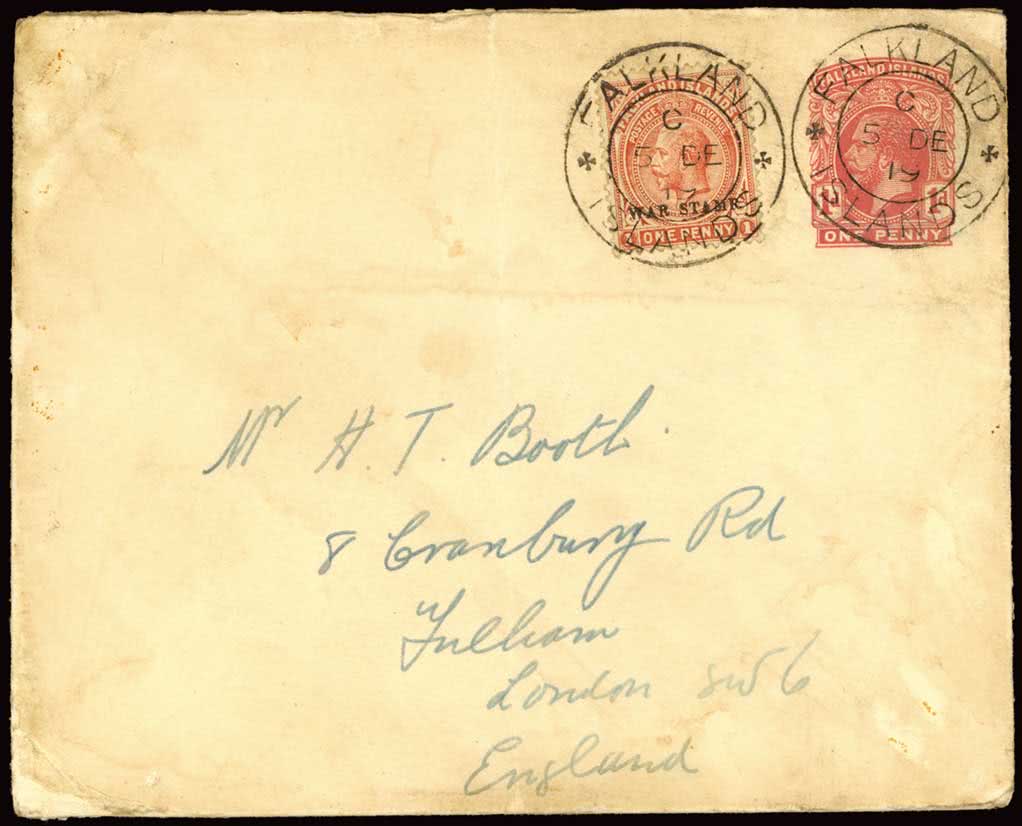 FALKLAND ISLANDS
C
5 DE
19
FALKLAND ISLANDS
POSTAGE REVENUE
WAR STAMP
1 ONE PENNY 1
FALKLAND ISLANDS
C
5 DE
19
FALKLAND ISLANDS
1D 1D
ONE PENNY
Mr H. T. Booth.
8 Cranbury Rd
Fulham
London SW6
England